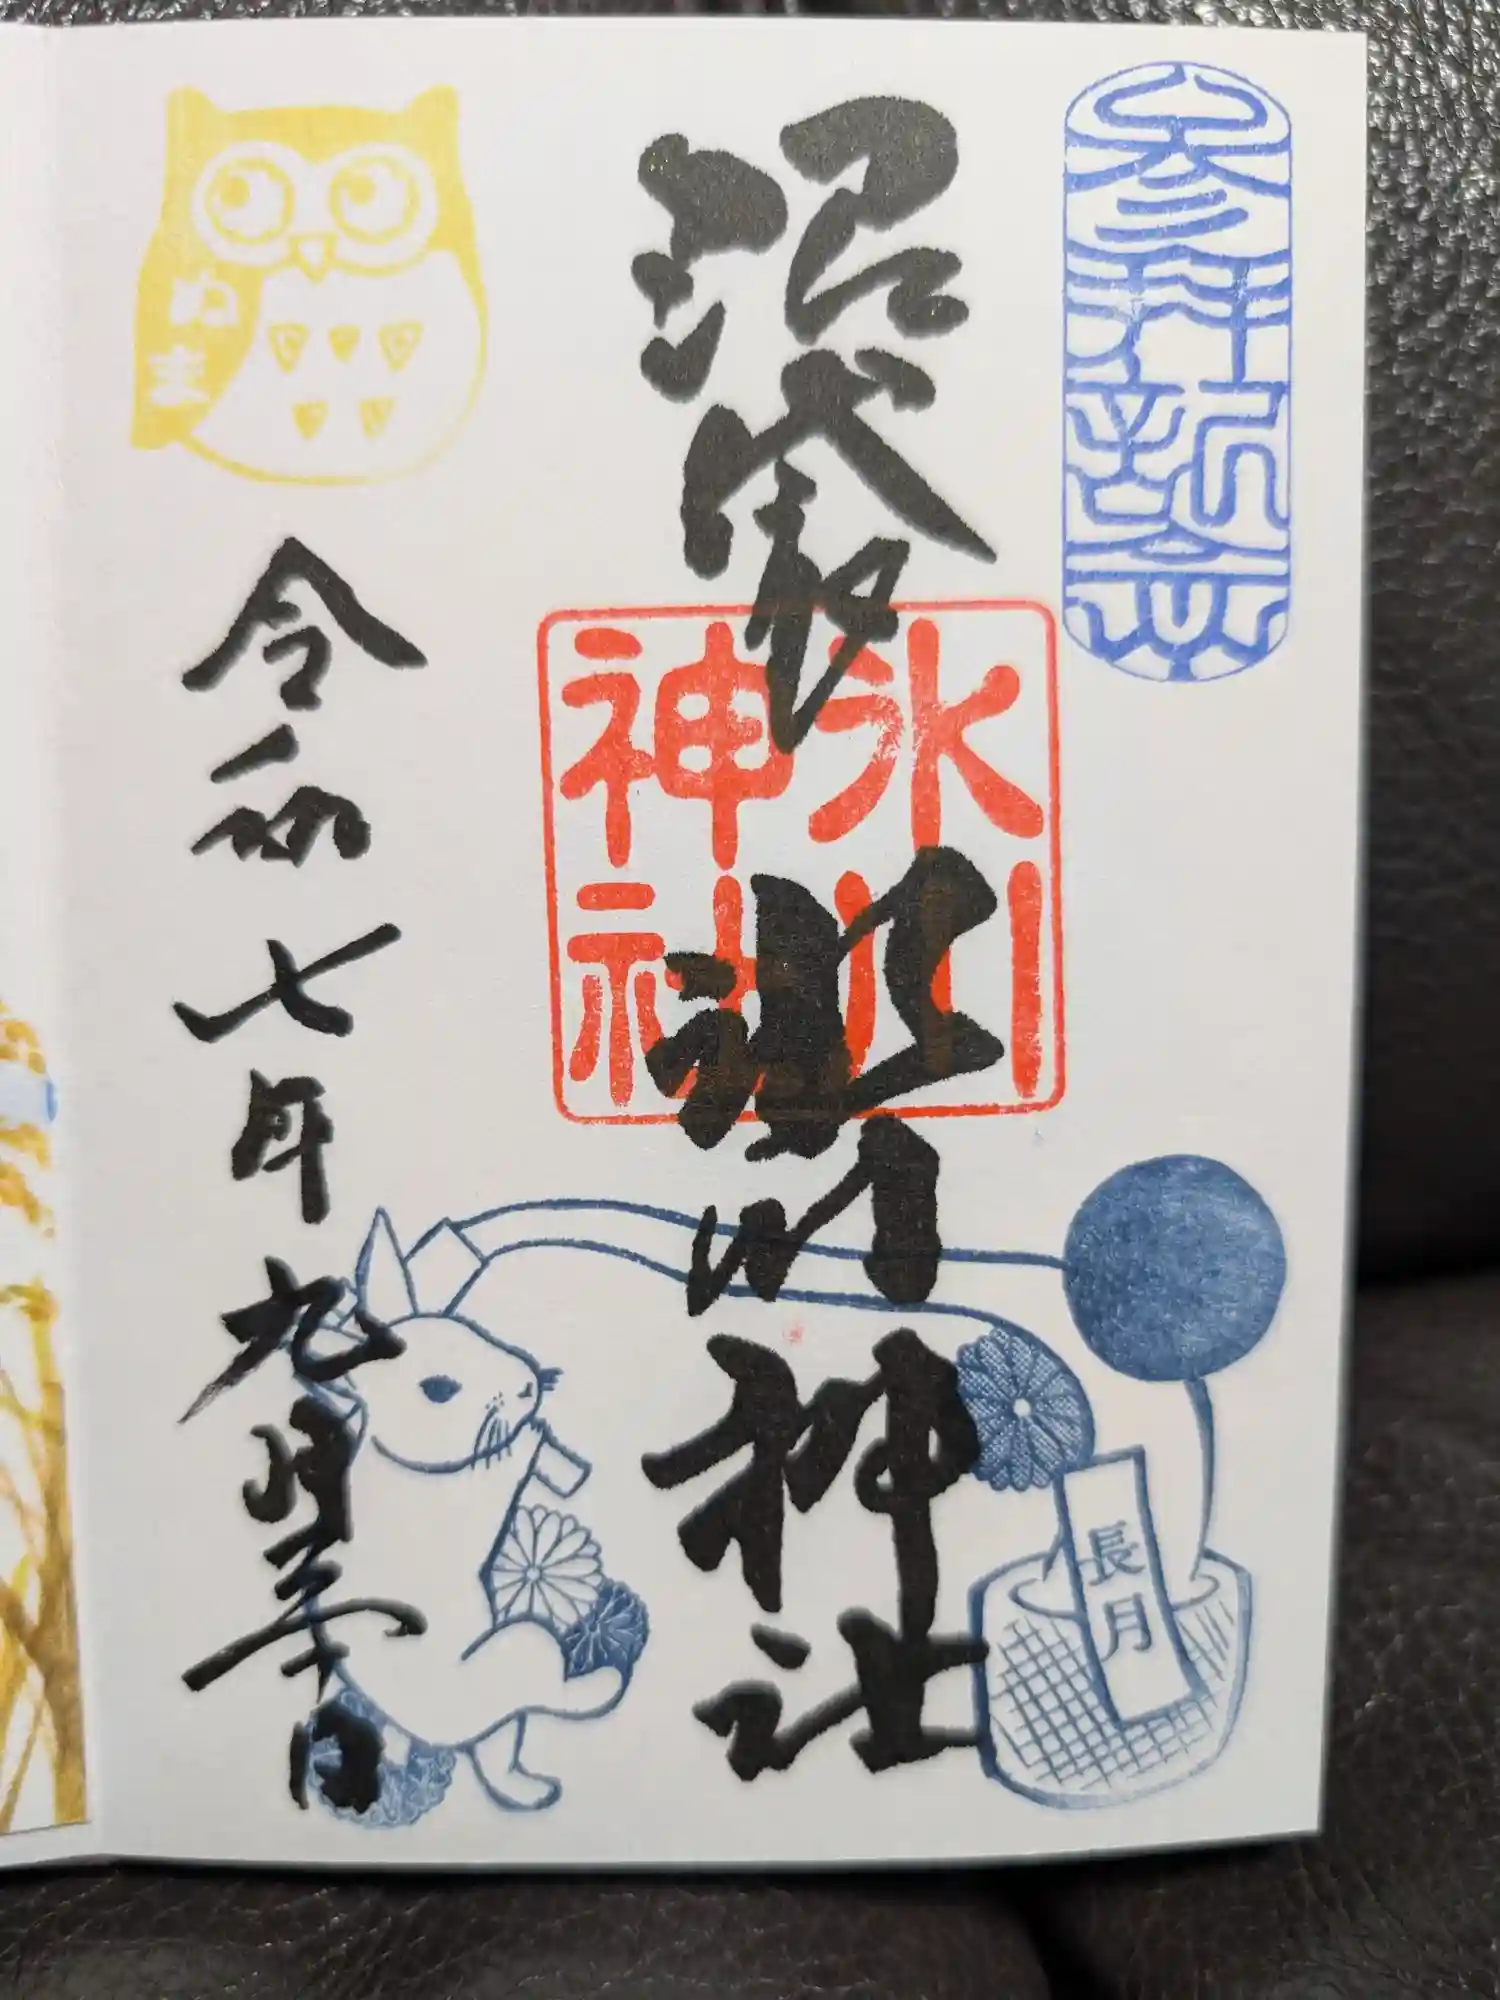 参拝記念
沼袋
氷川神社
氷川
神社
ぬま
令和七年九月
日
長月